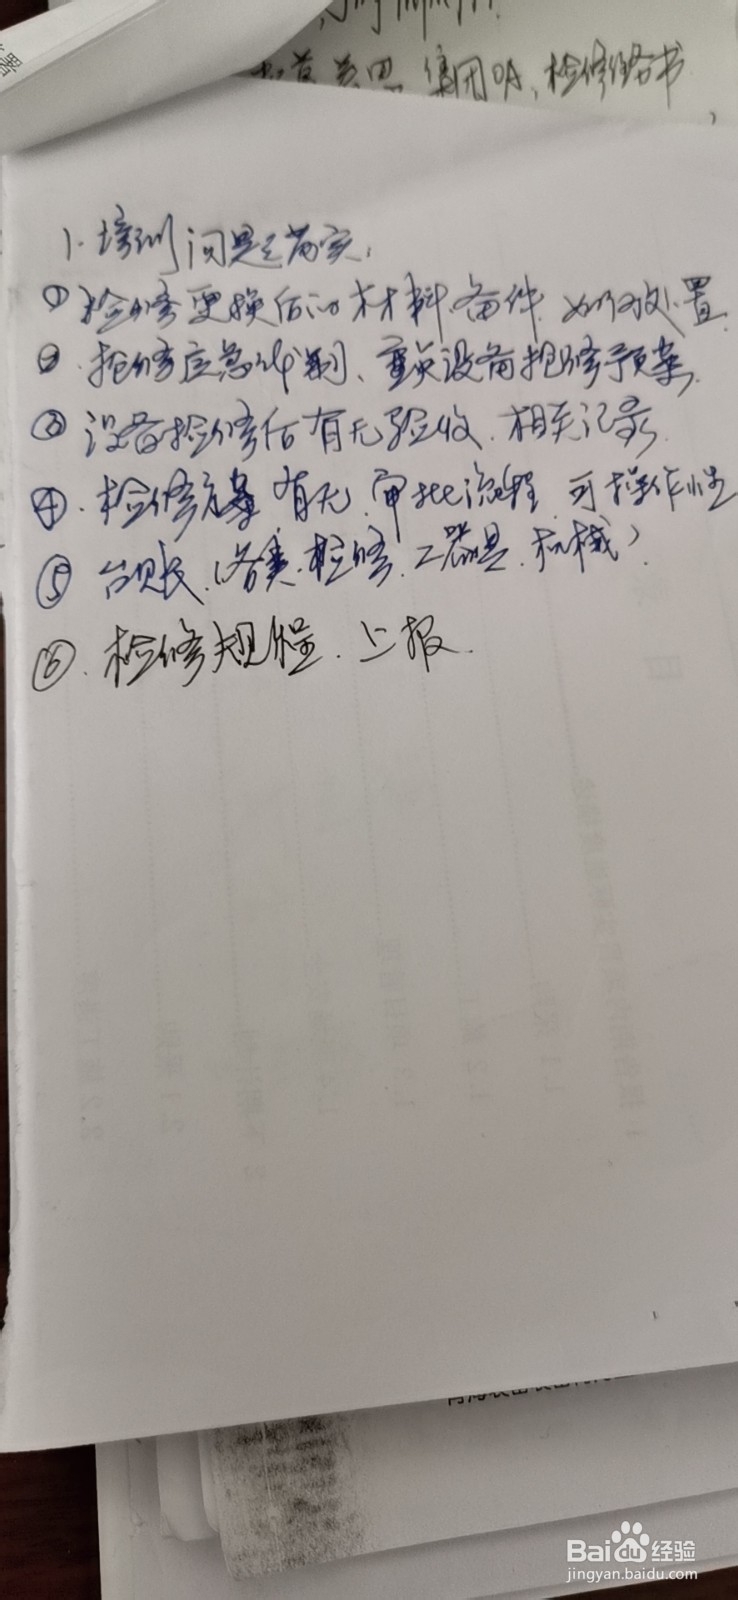 集团OA、检修任务书
1. 培训问题之落实，
① 检修更换后的材料、备件、如何处置
② 抢修应急机制、重大设备抢修预案
③ 设备检修后有无验收、相关记录
④ 检修方案有无审批流程 可操作性
⑤ 台账、(各类、检修、工器具、机械)
⑥ 检修规程、上报
Baidu经验
jingyan.baidu.com